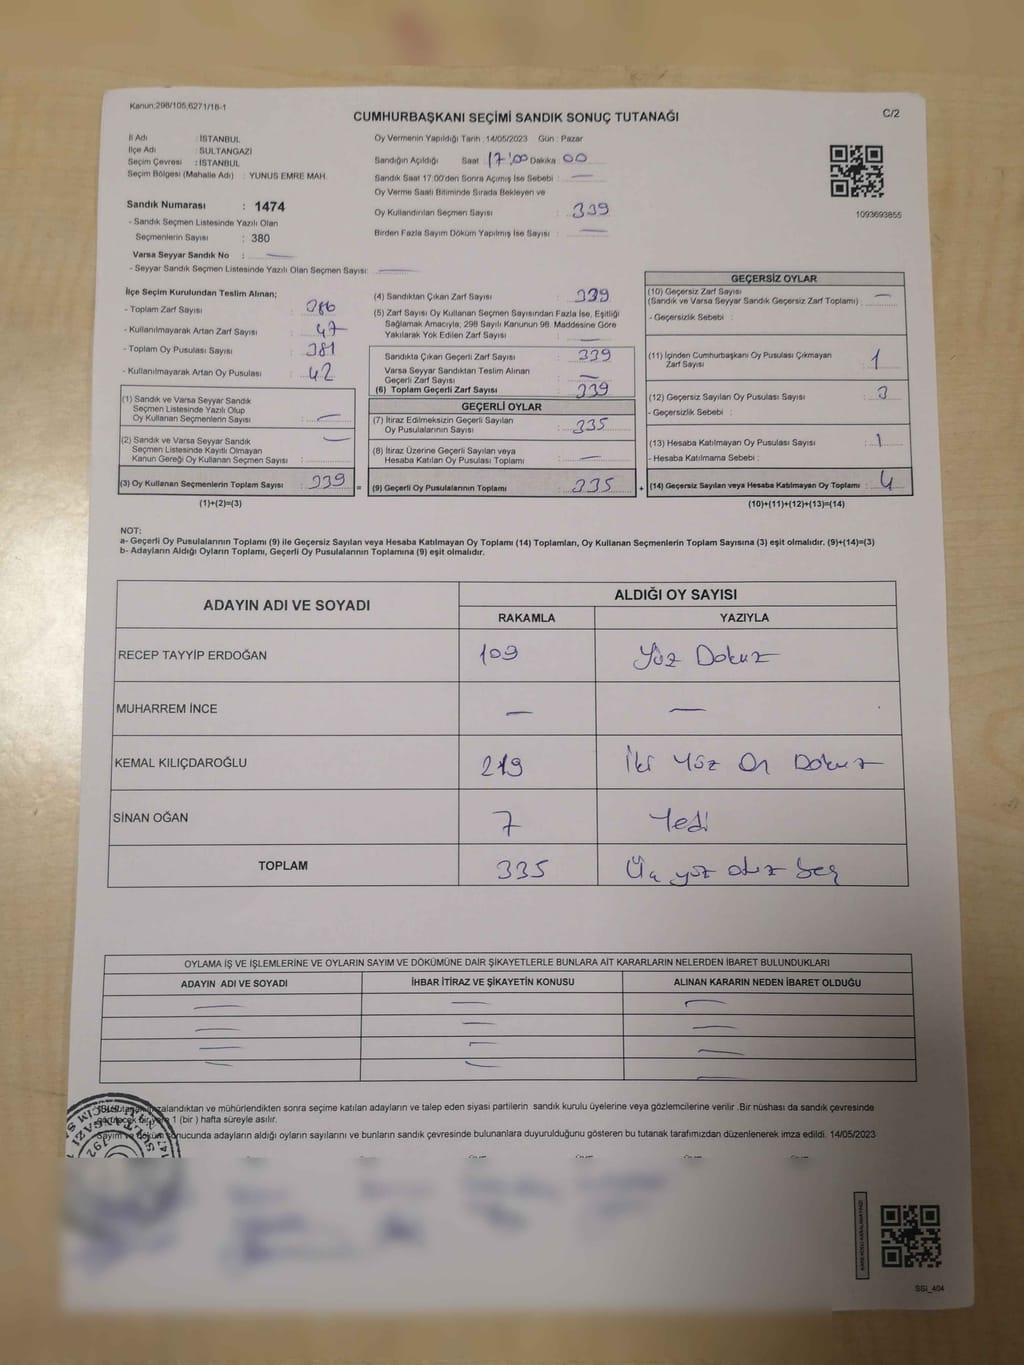 Kanun;298/105,6271/16-1
CUMHURBAŞKANI SEÇİMİ SANDIK SONUÇ TUTANAĞI
C/2
İl Adı : İSTANBUL
İlçe Adı : SULTANGAZİ
Seçim Çevresi : İSTANBUL
Seçim Bölgesi (Mahalle Adı) : YUNUS EMRE MAH.
Sandık Numarası : 1474
- Sandık Seçmen Listesinde Yazılı Olan
Seçmenlerin Sayısı : 380
Varsa Seyyar Sandık No : —
- Seyyar Sandık Seçmen Listesinde Yazılı Olan Seçmen Sayısı: —
Oy Vermenin Yapıldığı Tarih :14/05/2023 Gün : Pazar
Sandığın Açıldığı Saat : 17:00 Dakika : 00
Sandık Saat 17:00'den Sonra Açımış İse Sebebi : —
Oy Verme Saati Bitiminde Sırada Bekleyen ve
Oy Kullandırılan Seçmen Sayısı : 339
Birden Fazla Sayım Döküm Yapılmış İse Sayısı : —
1093693855
İlçe Seçim Kurulundan Teslim Alınan;
- Toplam Zarf Sayısı : 386
- Kullanılmayarak Artan Zarf Sayısı : 47
- Toplam Oy Pusulası Sayısı : 381
- Kullanılmayarak Artan Oy Pusulası : 42
(1) Sandık ve Varsa Seyyar Sandık
Seçmen Listesinde Yazılı Olup
Oy Kullanan Seçmenlerin Sayısı : —
(2) Sandık ve Varsa Seyyar Sandık
Seçmen Listesinde Kayıtlı Olmayan
Kanun Gereği Oy Kullanan Seçmen Sayısı : —
(3) Oy Kullanan Seçmenlerin Toplam Sayısı : 339 =
(1)+(2)=(3)
(4) Sandıktan Çıkan Zarf Sayısı : 339
(5) Zarf Sayısı Oy Kullanan Seçmen Sayısından Fazla İse, Eşitliği
Sağlamak Amacıyla, 298 Sayılı Kanunun 98. Maddesine Göre
Yakılarak Yok Edilen Zarf Sayısı : —
Sandıkta Çıkan Geçerli Zarf Sayısı : 339
Varsa Seyyar Sandıktan Teslim Alınan
Geçerli Zarf Sayısı : —
(6) Toplam Geçerli Zarf Sayısı : 339
GEÇERLİ OYLAR
(7) İtiraz Edilmeksizin Geçerli Sayılan
Oy Pusulalarının Sayısı : 335
(8) İtiraz Üzerine Geçerli Sayılan veya
Hesaba Katılan Oy Pusulası Toplamı : —
(9) Geçerli Oy Pusulalarının Toplamı : 335 +
GEÇERSİZ OYLAR
(10) Geçersiz Zarf Sayısı
(Sandık ve Varsa Seyyar Sandık Geçersiz Zarf Toplamı) : —
- Geçersizlik Sebebi :
(11) İçinden Cumhurbaşkanı Oy Pusulası Çıkmayan
Zarf Sayısı : 1
(12) Geçersiz Sayılan Oy Pusulası Sayısı : 3
- Geçersizlik Sebebi :
(13) Hesaba Katılmayan Oy Pusulası Sayısı : 1
- Hesaba Katılmama Sebebi :
(14) Geçersiz Sayılan veya Hesaba Katılmayan Oy Toplamı : 4
(10)+(11)+(12)+(13)=(14)
NOT:
a- Geçerli Oy Pusulalarının Toplamı (9) ile Geçersiz Sayılan veya Hesaba Katılmayan Oy Toplamı (14) Toplamları, Oy Kullanan Seçmenlerin Toplam Sayısına (3) eşit olmalıdır. (9)+(14)=(3)
b- Adayların Aldığı Oyların Toplamı, Geçerli Oy Pusulalarının Toplamına (9) eşit olmalıdır.
ADAYIN ADI VE SOYADI
ALDIĞI OY SAYISI
RAKAMLA YAZIYLA
RECEP TAYYİP ERDOĞAN 109 Yüz Dokuz
MUHARREM İNCE — —
KEMAL KILIÇDAROĞLU 219 İki Yüz On Dokuz
SİNAN OĞAN 7 Yedi
TOPLAM 335 Üç yüz otuz beş
OYLAMA İŞ VE İŞLEMLERİNE VE OYLARIN SAYIM VE DÖKÜMÜNE DAİR ŞİKAYETLERLE BUNLARA AİT KARARLARIN NELERDEN İBARET BULUNDUKLARI
ADAYIN ADI VE SOYADI İHBAR İTİRAZ VE ŞİKAYETİN KONUSU ALINAN KARARIN NEDEN İBARET OLDUĞU
zalandıktan ve mühürlendikten sonra seçime katılan adayların ve talep eden siyasi partilerin sandık kurulu üyelerine veya gözlemcilerine verilir .Bir nüshası da sandık çevresinde
1 (bir ) hafta süreyle asılır.
Sayım ve döküm sonucunda adayların aldığı oyların sayılarını ve bunların sandık çevresinde bulunanlara duyurulduğunu gösteren bu tutanak tarafımızdan düzenlenerek imza edildi. 14/05/2023
SSİ_404